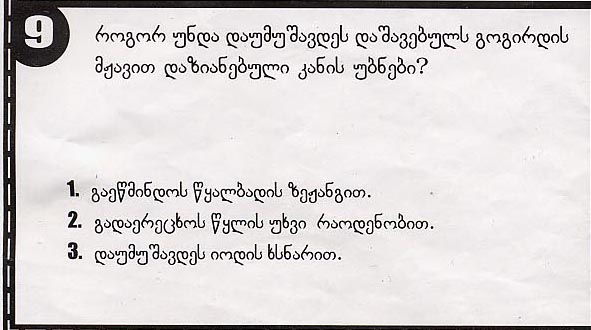 9
როგორ უნდა დაუმუშავდეს დაშავებულს გოგირდის
მჟავით დაზიანებული კანის უბნები?
1. გაეწმინდოს წყალბადის ზეჟანგით.
2. გადაერეცხოს წყლის უხვი რაოდენობით.
3. დაუმუშავდეს იოდის ხსნარით.